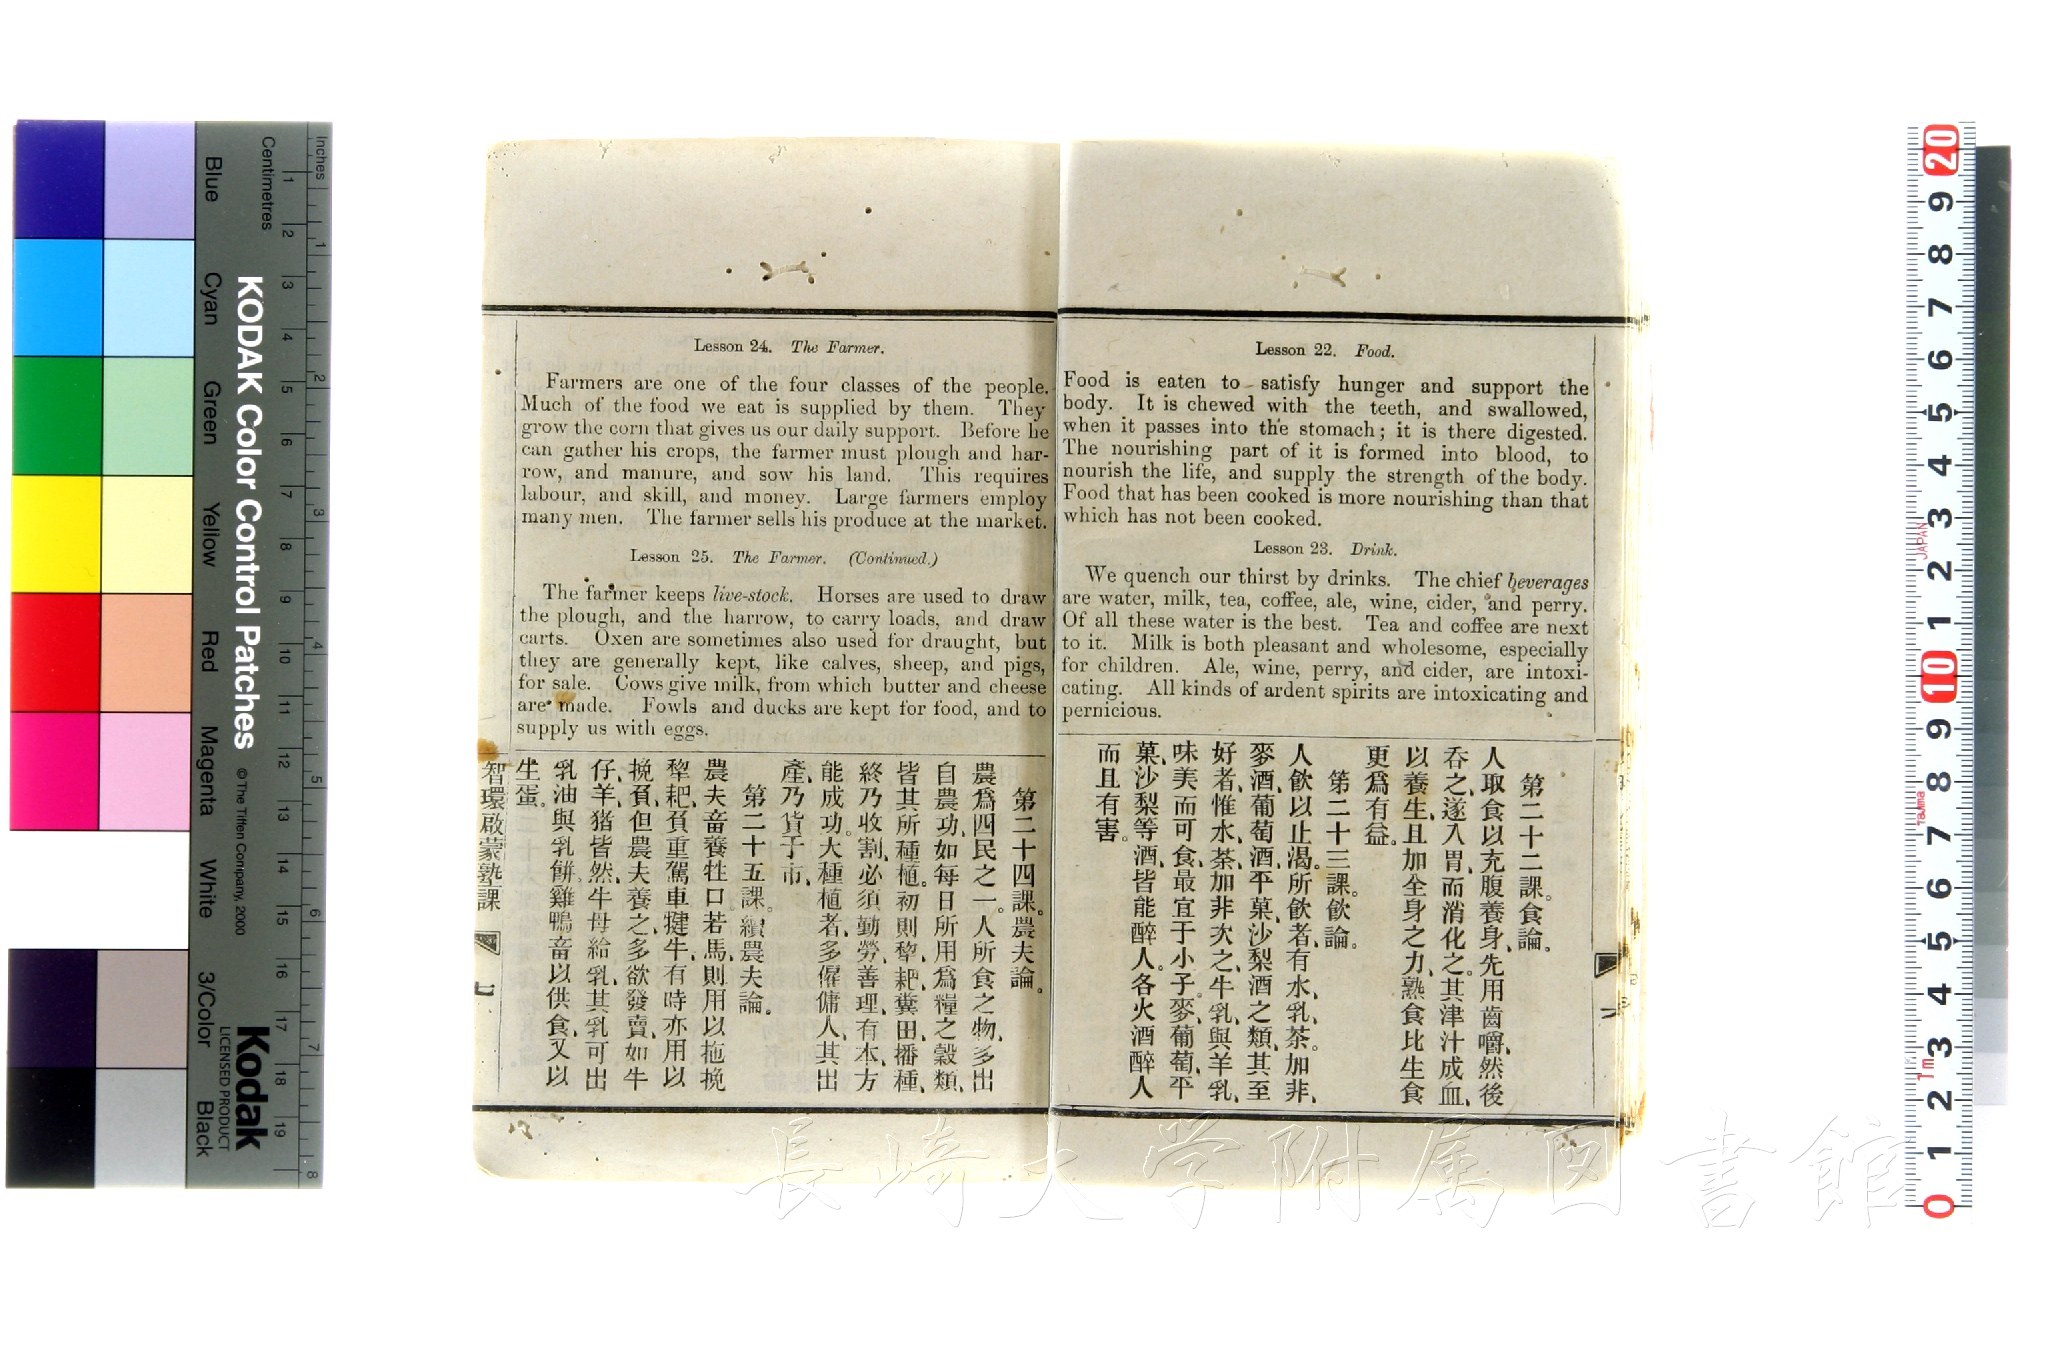 Lesson 22. Food.
Food is eaten to satisfy hunger and support the
body. It is chewed with the teeth, and swallowed,
when it passes into the stomach; it is there digested.
The nourishing part of it is formed into blood, to
nourish the life, and supply the strength of the body.
Food that has been cooked is more nourishing than that
which has not been cooked.
Lesson 23. Drink.
We quench our thirst by drinks. The chief beverages
are water, milk, tea, coffee, ale, wine, cider, and perry.
Of all these water is the best. Tea and coffee are next
to it. Milk is both pleasant and wholesome, especially
for children. Ale, wine, perry, and cider, are intoxi-
cating. All kinds of ardent spirits are intoxicating and
pernicious.
第二十二課。食論。
人取食以充腹養身、先用齒嚼、然後
吞之、遂入胃、而消化之。其津汁成血、
以養生、且加全身之力、熟食比生食
更爲有益。
第二十三課。飲論。
人飲以止渴。所飲者、有水、乳、茶、加非、
麥酒、葡萄酒、平菓、沙梨酒之類、其至
好者、惟水、茶、加非次之、牛乳、與羊乳、
味美而可食、最宜于小子。麥、葡萄、平
菓、沙梨等酒、皆能醉人。各火酒醉人
而且有害。
Lesson 24. The Farmer.
Farmers are one of the four classes of the people.
Much of the food we eat is supplied by them. They
grow the corn that gives us our daily support. Before he
can gather his crops, the farmer must plough and har-
row, and manure, and sow his land. This requires
labour, and skill, and money. Large farmers employ
many men. The farmer sells his produce at the market.
Lesson 25. The Farmer. (Continued.)
The farmer keeps live-stock. Horses are used to draw
the plough, and the harrow, to carry loads, and draw
carts. Oxen are sometimes also used for draught, but
they are generally kept, like calves, sheep, and pigs,
for sale. Cows give milk, from which butter and cheese
are made. Fowls and ducks are kept for food, and to
supply us with eggs.
第二十四課。農夫論。
農爲四民之一。人所食之物、多出
自農功、如每日所用爲糧之穀類、
皆其所種植。初則犂、耙、糞田、播種、
終乃收割、必須勤勞、善理、有本、方
能成功。大種植者、多僱傭人、其出
產、乃貨于市、
第二十五課。續農夫論。
農夫畜養牲口。若馬、則用以拖挽
犂、耙、負重、駕車、犍牛、有時亦用以
挽負、但農夫養之、多欲發賣、如牛
仔、羊、猪皆然、牛母給乳、其乳可出
乳油與乳餅。雞鴨畜以供食、又以
生蛋。
智環啟蒙塾課
七
KODAK Color Control Patches
© The Tiffen Company, 2000
Kodak
LICENSED PRODUCT
Inches
Centimetres
Blue
Cyan
Green
Yellow
Red
Magenta
White
3/Color
Black
1 2 3 4 5 6 7 8 9 10 11 12 13 14 15 16 17 18 19
1 2 3 4 5 6 7 8
20 9 8 7 6 5 4 3 2 1 10 9 8 7 6 5 4 3 2 1 0
JAPAN
Tajima
1m
長崎大学附属図書館